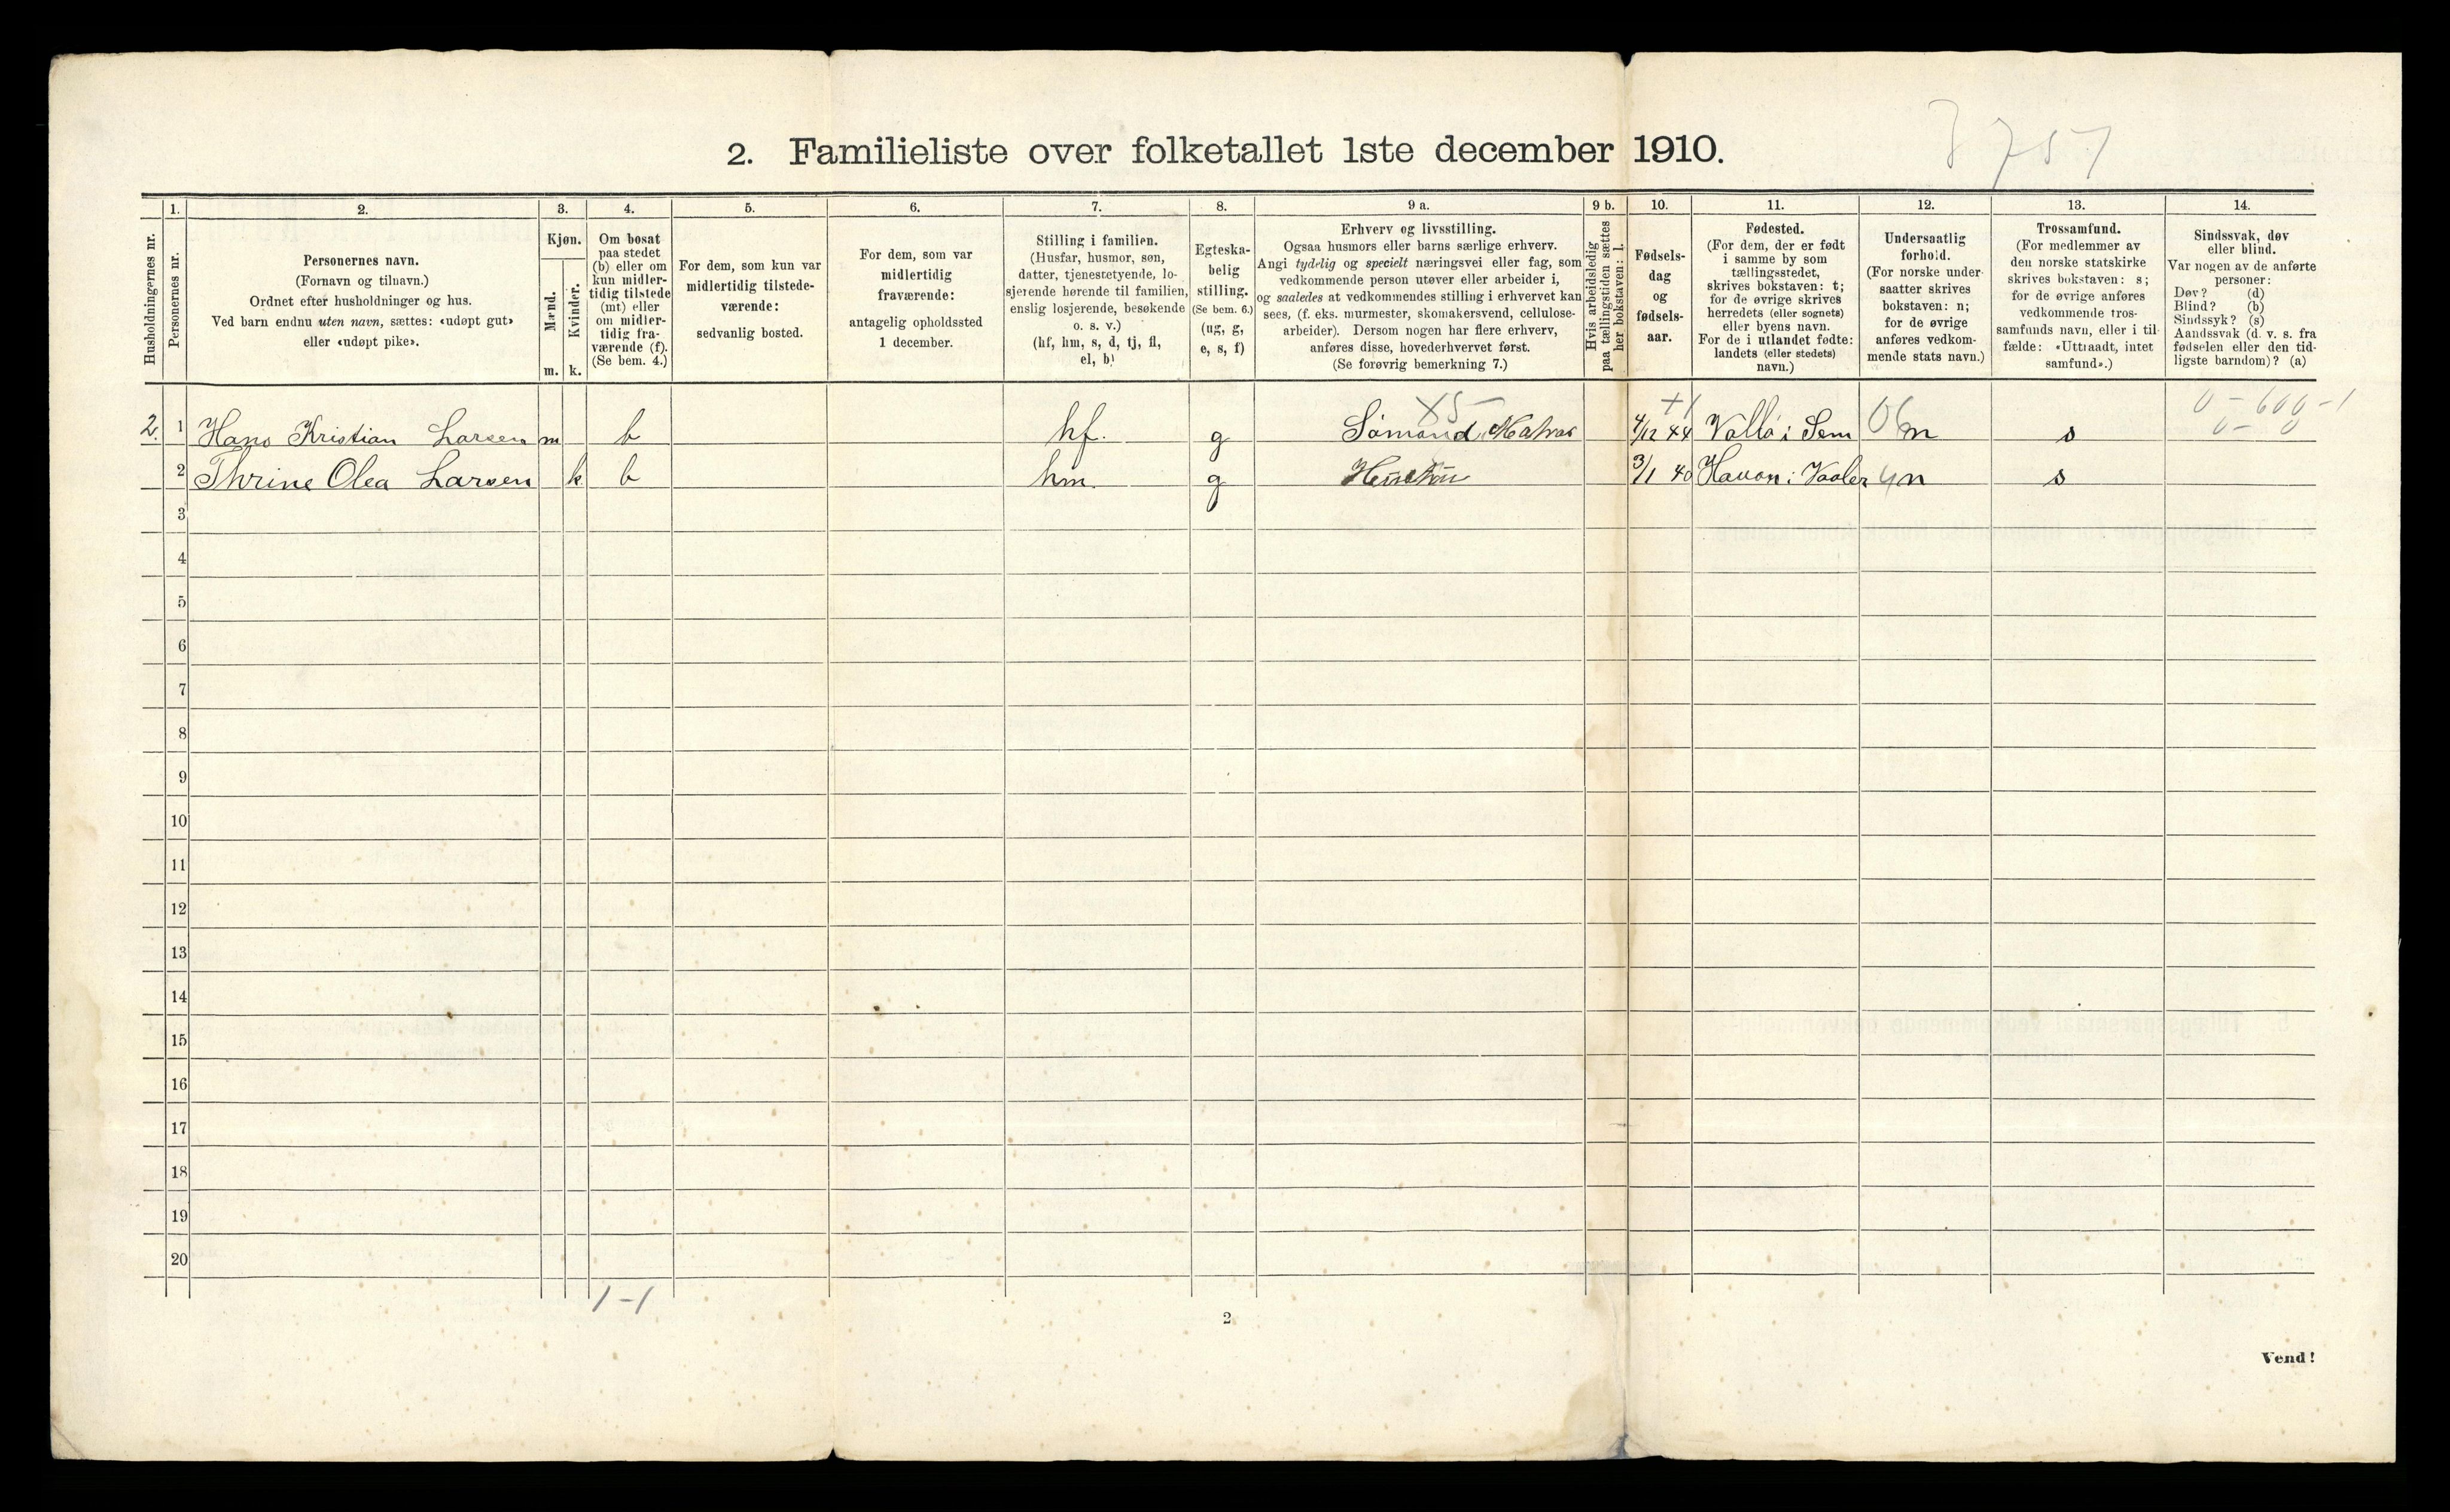 2. Familieliste over folketallet 1ste december 1910.
Husholdningernes nr.
1.
Personernes nr.
2.
Personernes navn.
(Fornavn og tilnavn.)
Ordnet efter husholdninger og hus.
Ved barn endnu uten navn, sættes: «udøpt gut»
eller «udøpt pike».
3.
Kjøn.
Mænd.
Kvinder.
m. k.
4.
Om bosat
paa stedet
(b) eller om
kun midler-
tidig tilstede
(mt) eller
om midler-
tidig fra-
værende (f).
(Se bem. 4.)
5.
For dem, som kun var
midlertidig tilstede-
værende:
sedvanlig bosted.
6.
For dem, som var
midlertidig
fraværende:
antagelig opholdssted
1 december.
7.
Stilling i familien.
(Husfar, husmor, søn,
datter, tjenestetyende, lo-
sjerende hørende til familien,
enslig losjerende, besøkende
o. s. v.)
(hf, hm, s, d, tj, fl,
el, b)
8.
Egteska-
belig
stilling.
(Se bem. 6.)
(ug, g,
e, s, f)
9 a.
Erhverv og livsstilling.
Ogsaa husmors eller barns særlige erhverv.
Angi tydelig og specielt næringsvei eller fag, som
vedkommende person utøver eller arbeider i,
og saaledes at vedkommendes stilling i erhvervet kan
sees, (f. eks. murmester, skomakersvend, cellulose-
arbeider). Dersom nogen har flere erhverv,
anføres disse, hovederhvervet først.
(Se forøvrig bemerkning 7.)
9 b.
Hvis arbeidsledig
paa tællingstiden sættes
her bokstaven: l.
10.
Fødsels-
dag
og
fødsels-
aar.
11.
Fødested.
(For dem, der er født
i samme by som
tællingsstedet,
skrives bokstaven: t;
for de øvrige skrives
herredets (eller sognets)
eller byens navn.
For de i utlandet fødte:
landets (eller stedets)
navn.)
12.
Undersaatlig
forhold.
(For norske under-
saatter skrives
bokstaven: n;
for de øvrige
anføres vedkom-
mende stats navn.)
13.
Trossamfund.
(For medlemmer av
den norske statskirke
skrives bokstaven: s;
for de øvrige anføres
vedkommende tros-
samfunds navn, eller i til-
fælde: «Uttraadt, intet
samfund».)
14.
Sindssvak, døv
eller blind.
Var nogen av de anførte
personer:
Døv? (d)
Blind? (b)
Sindssyk? (s)
Aandssvak (d. v. s. fra
fødselen eller den tid-
ligste barndom)? (a)
X5 +1 0-600-1
2. 1 Hans Kristian Larsen m b hf. g Sömand, Matros 4/12 44 Vallö i Sem 06 n s 0- 0
2 Thrine Olea Larsen k b hm. g 3/1 40 i Vaaler n s
3
4
5
6
7
8
9
10
11
12
13
14
15
16
17
18
19
20
1-1
2
Vend!